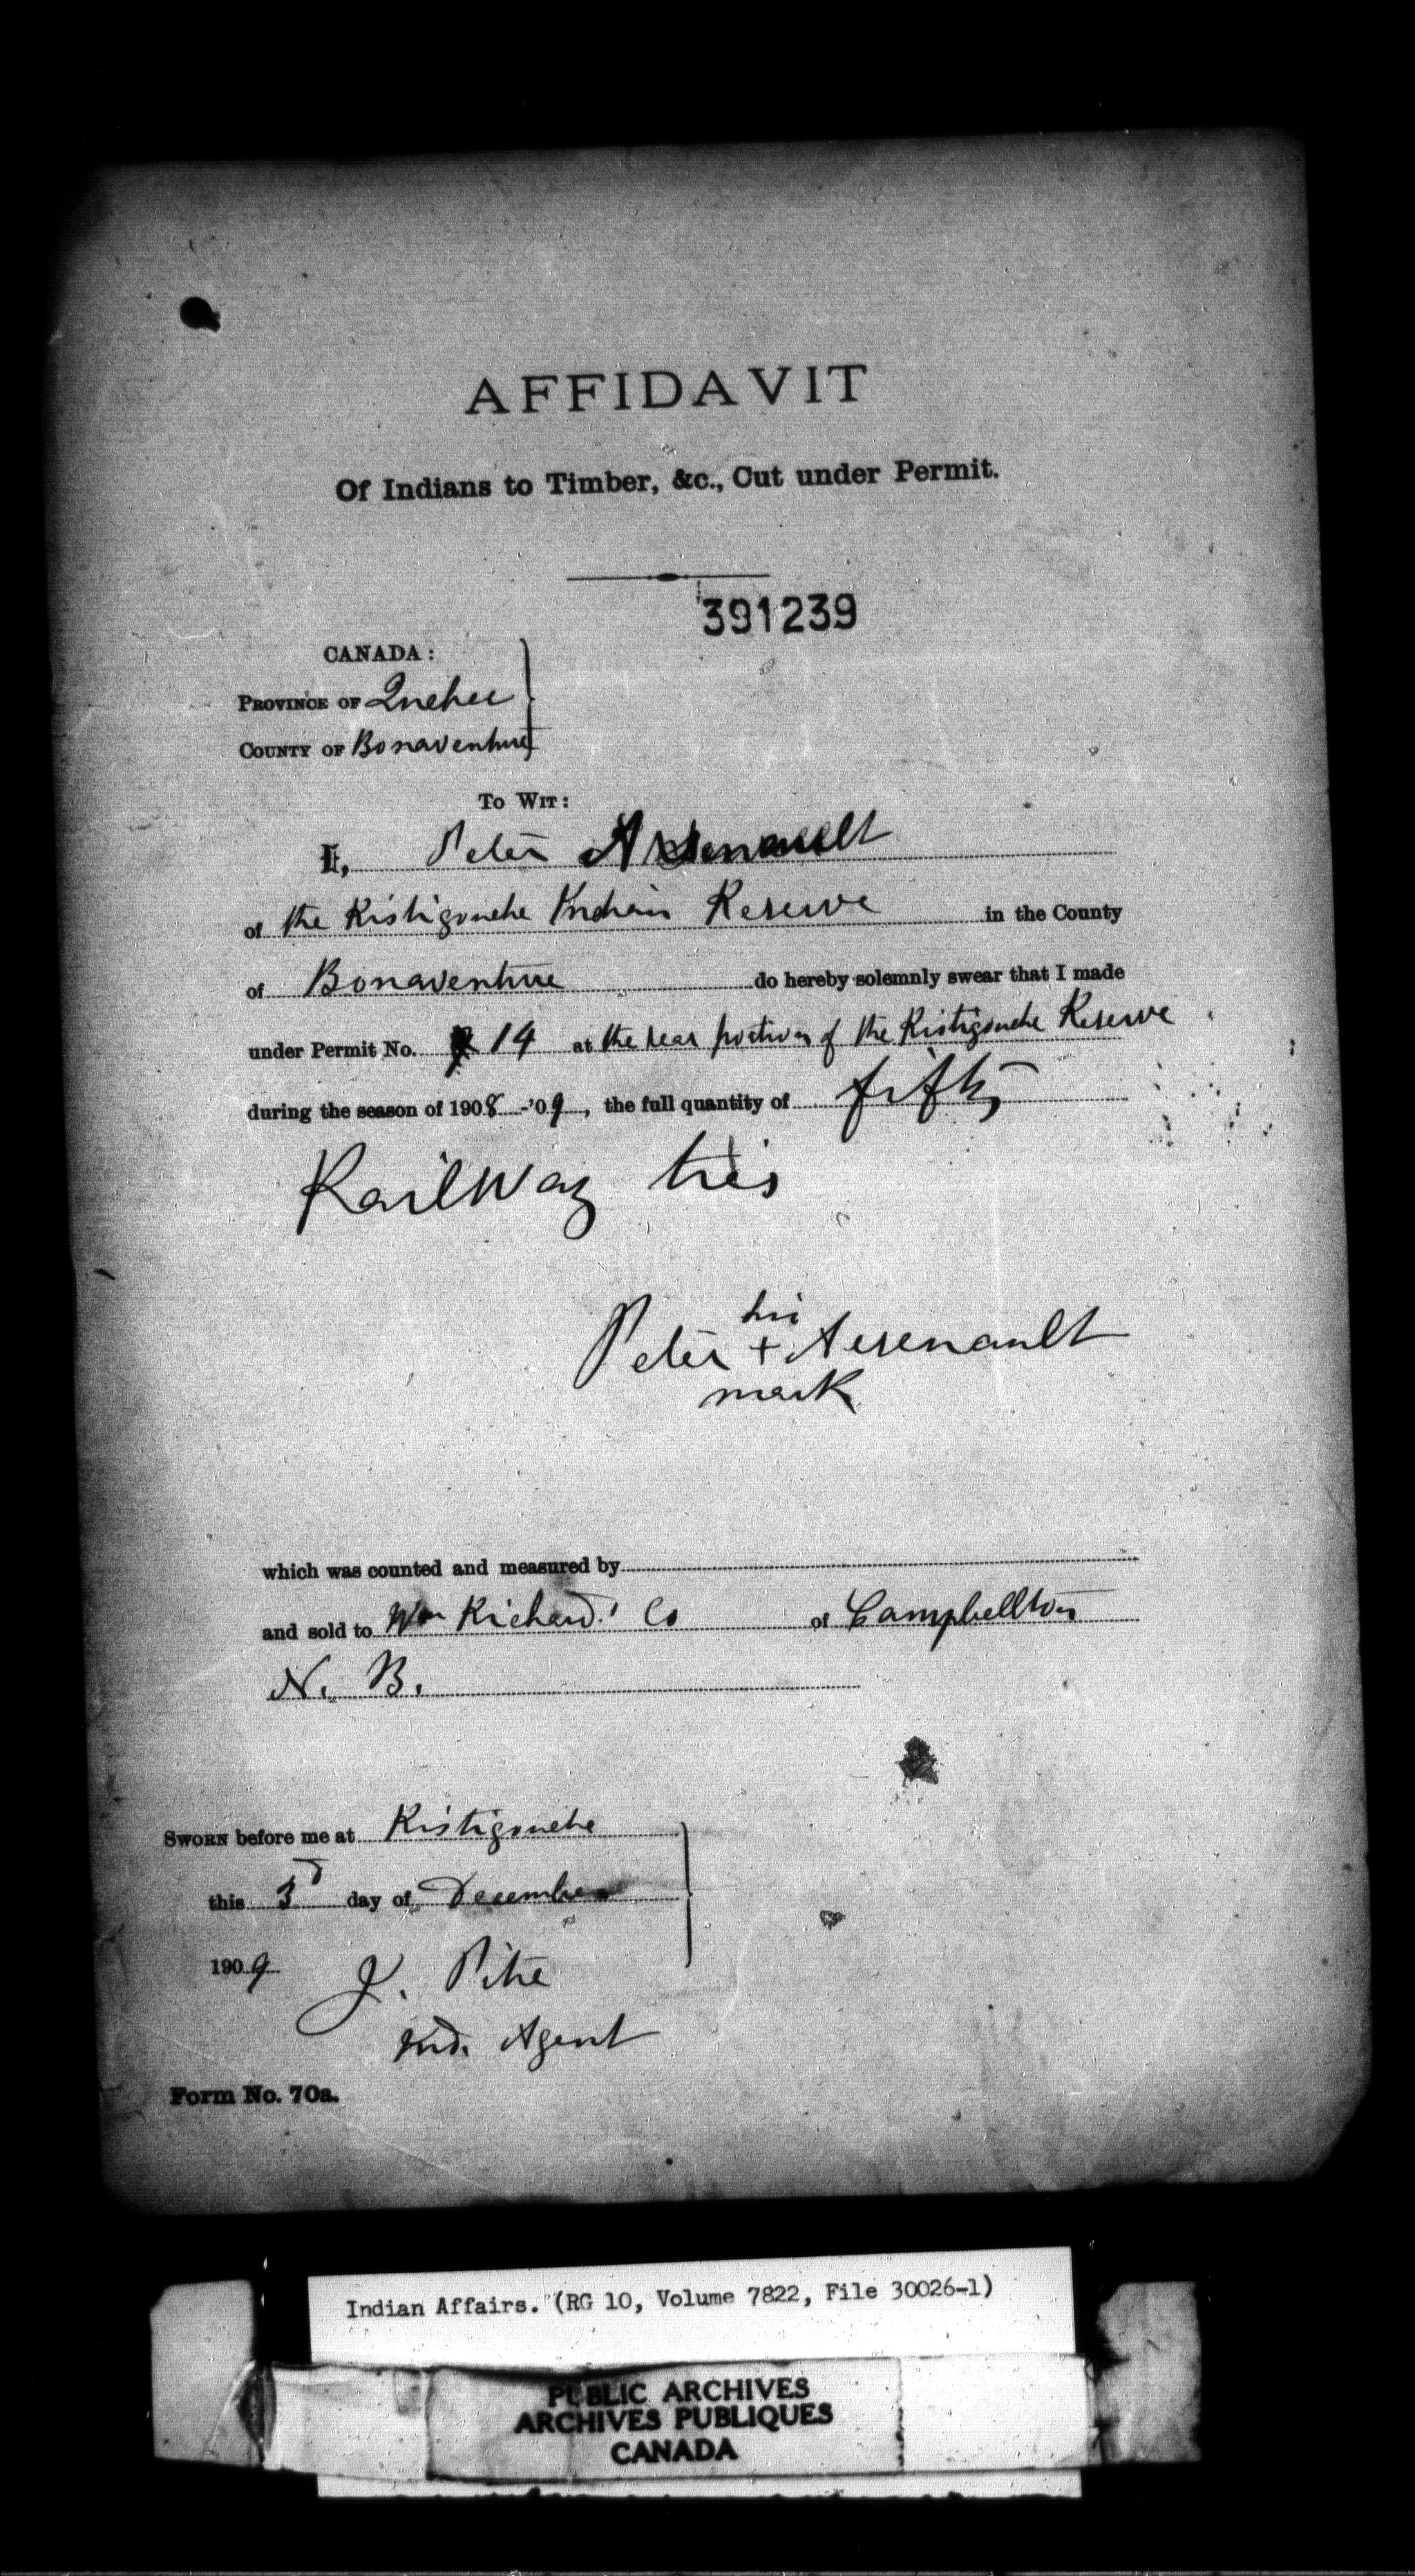 AFFIDAVIT
Of Indians to Timber, &c., Cut under Permit.
391239
CANADA:
PROVINCE OF Quebec
COUNTY OF Bonaventure
TO WIT:
I, Peter Arsenault
of the Ristigouche Indian Reserve in the County
of Bonaventure do hereby solemnly swear that I made
under Permit No. 14 at the rear portion of the Ristigouche Reserve
during the season of 1908-'09, the full quantity of fifty
Railway ties
his
Peter + Arsenault
mark
which was counted and measured by
and sold to Wm Richards Co of Campbellton
N. B.
SWORN before me at Ristigouche
this 3d day of December
1909 J. Pitre
Ind. Agent
Form No. 70a.
Indian Affairs. (RG 10, Volume 7822, File 30026-1)
PUBLIC ARCHIVES
ARCHIVES PUBLIQUES
CANADA